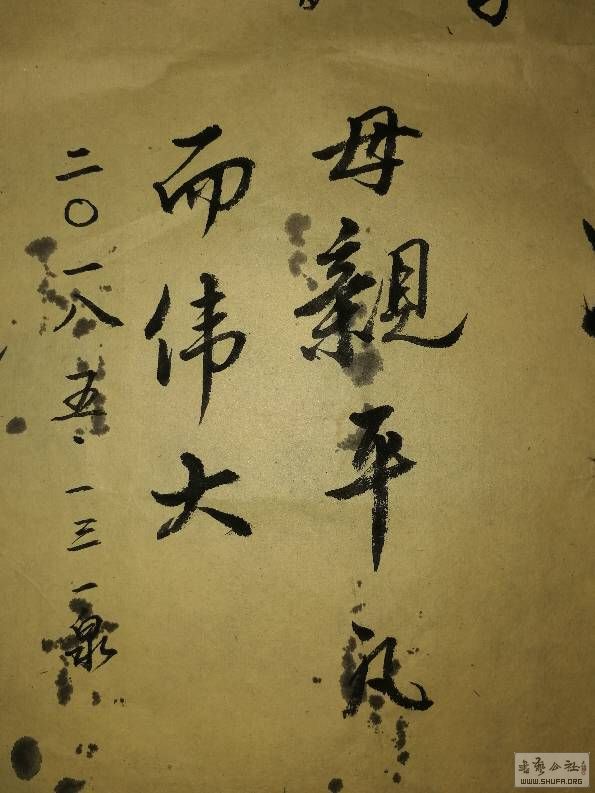 母親平凡
而伟大
二〇一八五、一三一泉
书艺公社
WWW.SHUFA.ORG